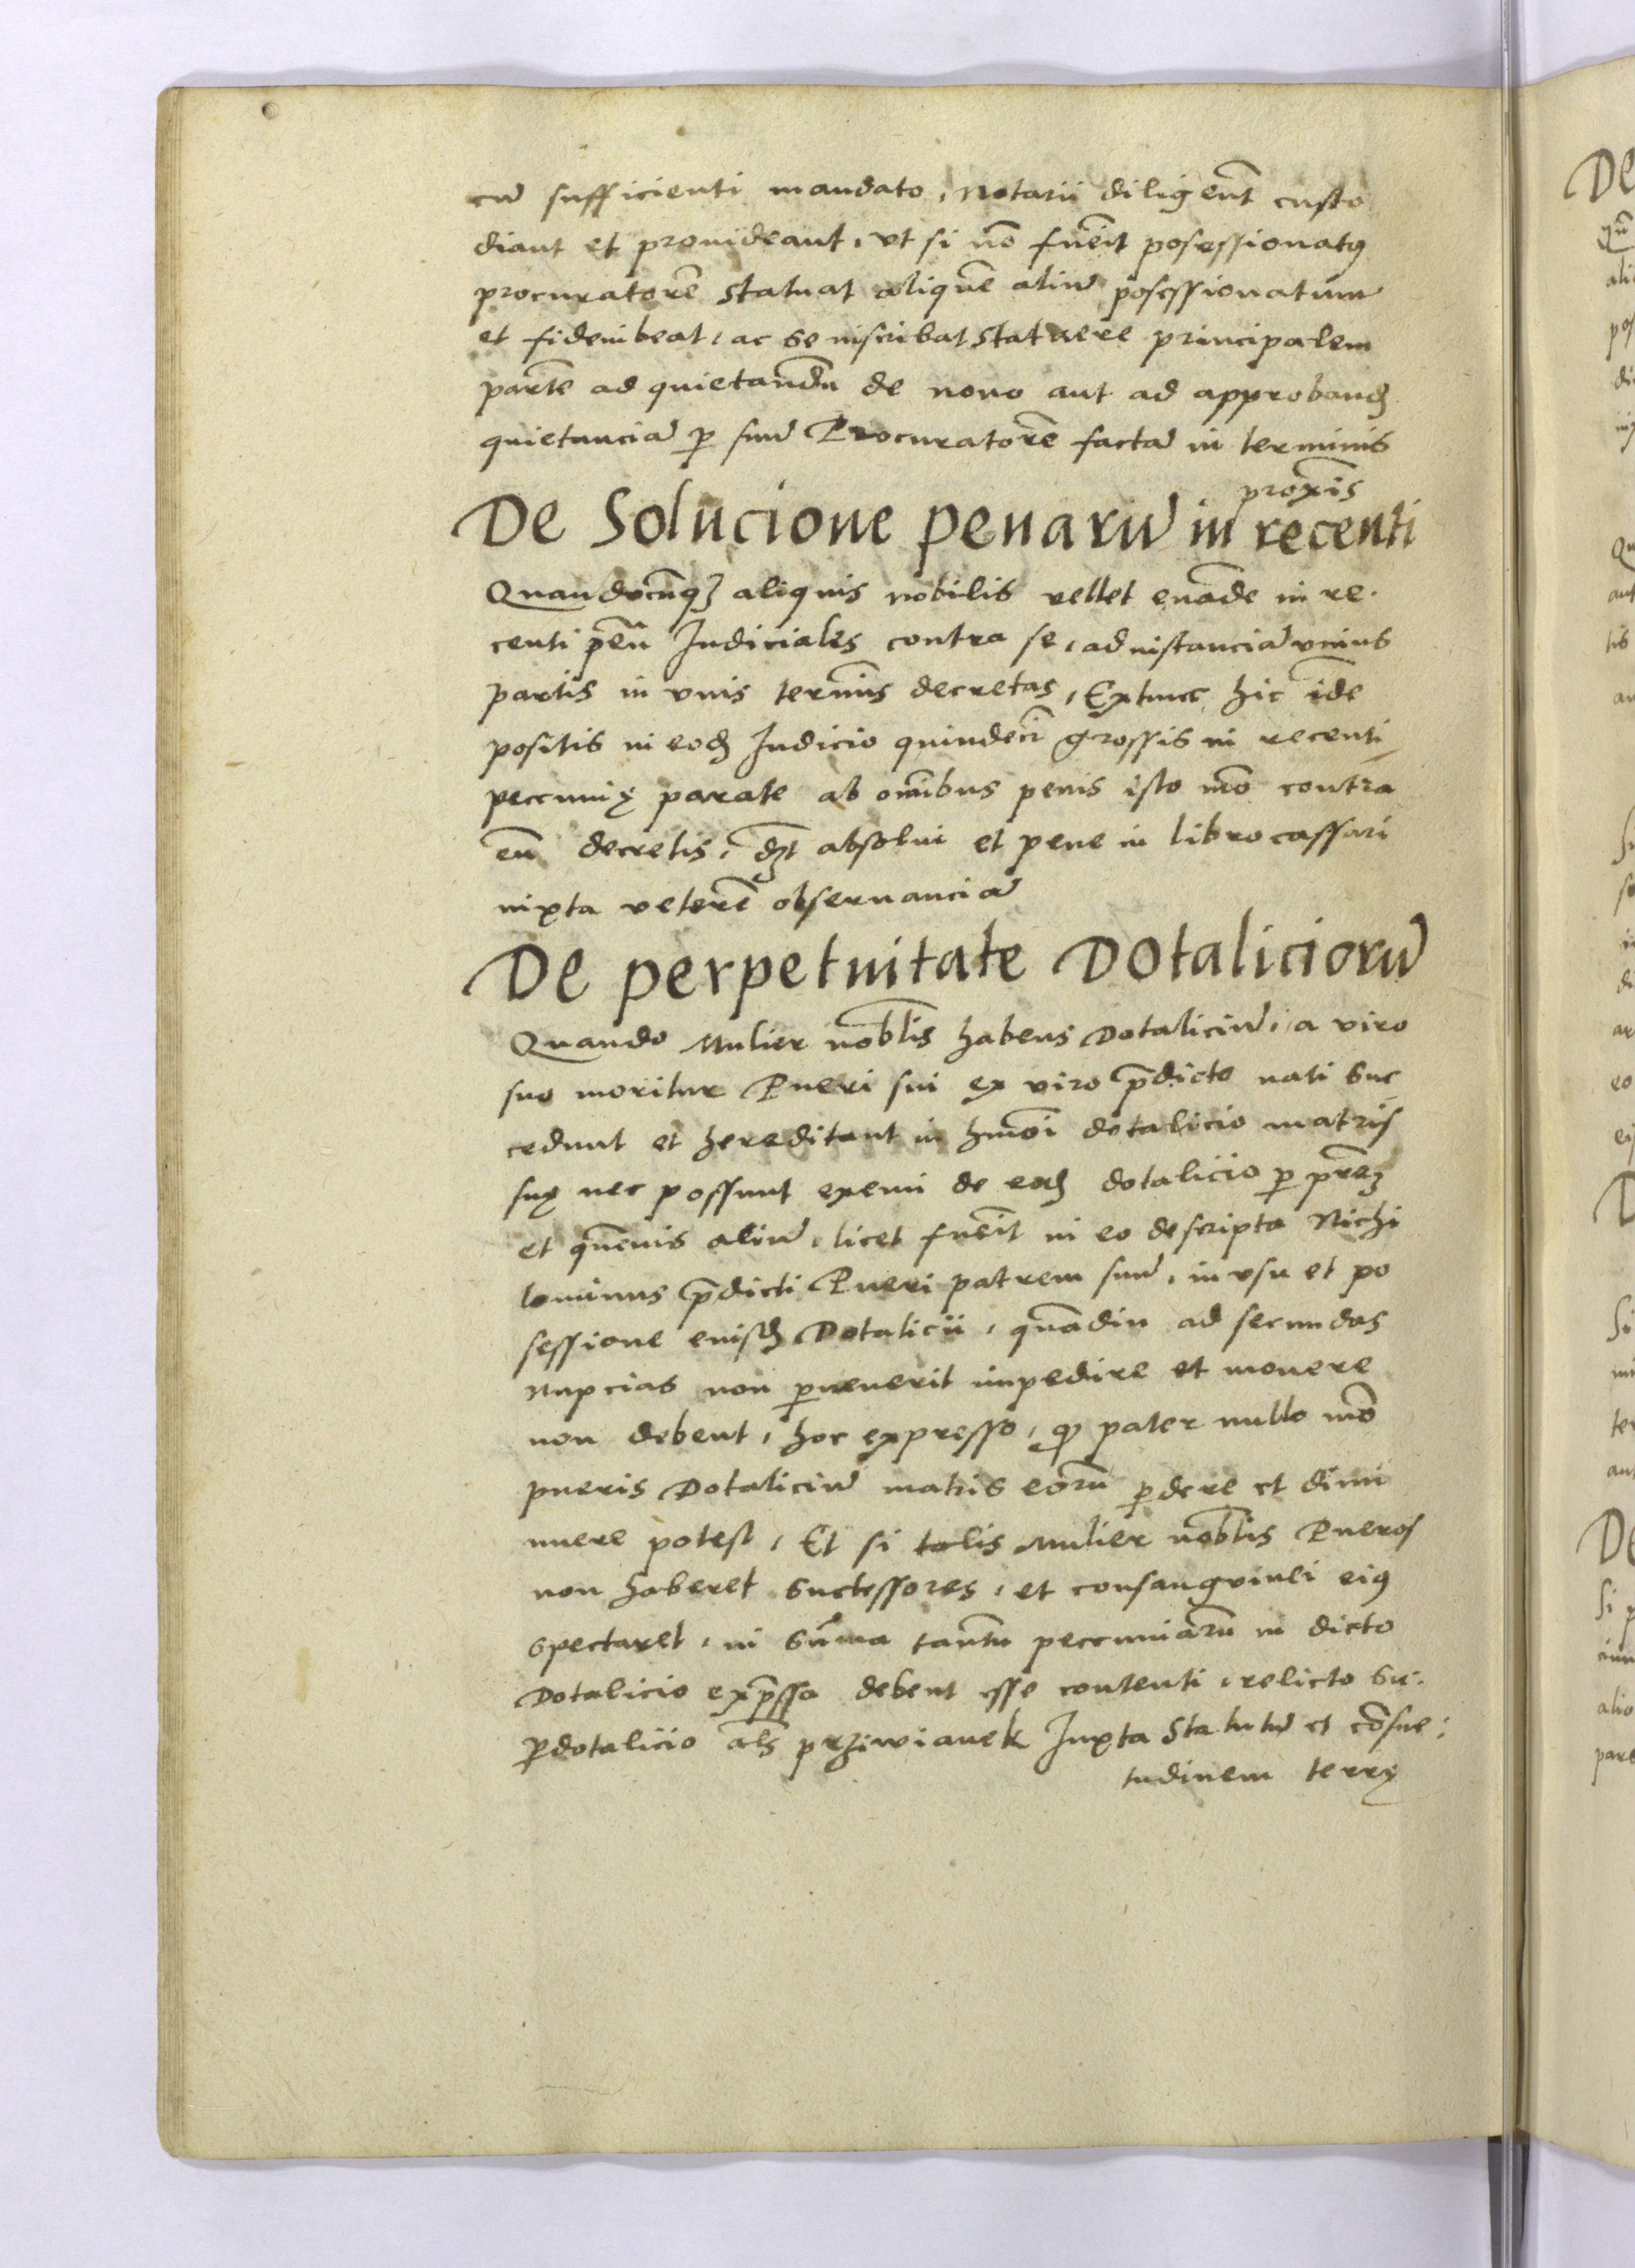 cū sufficienti mandato, Notarii diligent̄ custo
diant et prouideant, vt si nō fueīt posessionatꝰ
procuratorē statuat aliquē aliū posessionatum
et fideiubeat, ac se inscribat statuere principalem
partē ad quietandū de nouo aut ad approband
quietanciā ꝑ suū Procuratorē factā in terminis
proxīs
De Solucione penarū in recenti
Quandocūqꝫ aliquis nobilis vellet euadē in re-
centi pēn Judiciales contra se, ad instanciā vnius
partis in vnis termīs decretas, Extunc hic idē
positis in eod Judicio quindecī grossis in recenti
peccunię parate ab omībus penis isto mō contra
eū decretis, dꝫt absolui et pene in libro cassari
iuxta veterē obseruanciā
De perpetuitate Dotaliciorū
Quando Mulier nobl̄is habens Dotaliciū, a viro
suo moritur Pueri sui ex viro p̄dicto nati suc
cedunt et hereditant in hmōi dotalicio matris
suę nec possunt eximi de eod dotalicio ꝑ pr̄eꝫ
et quēuis aliū, licet fueīt in eo descripta Nichi
lominus p̄dicti Pueri patrem suū, in vsu et po
sessione eiusd Dotalicii, quādiu ad secundas
Nupcias non ꝑuenerit impedire et mouere
non debent, hoc expresso, ꝙ pater nullo mō
pueris Dotaliciū matris eorū ꝑdere et dimi
nuere potest, Et si talis Mulier nobl̄is Pueros
non haberet Successores, et consanguinei eiꝰ
spectaret, in sūma tantū peccuniarū in dicto
Dotalicio exp̄sso debent esse contenti, relicto su-
ꝑdotalicio al̄s prziwianek Juxta Statutū et cōsue-
tudinem terrę